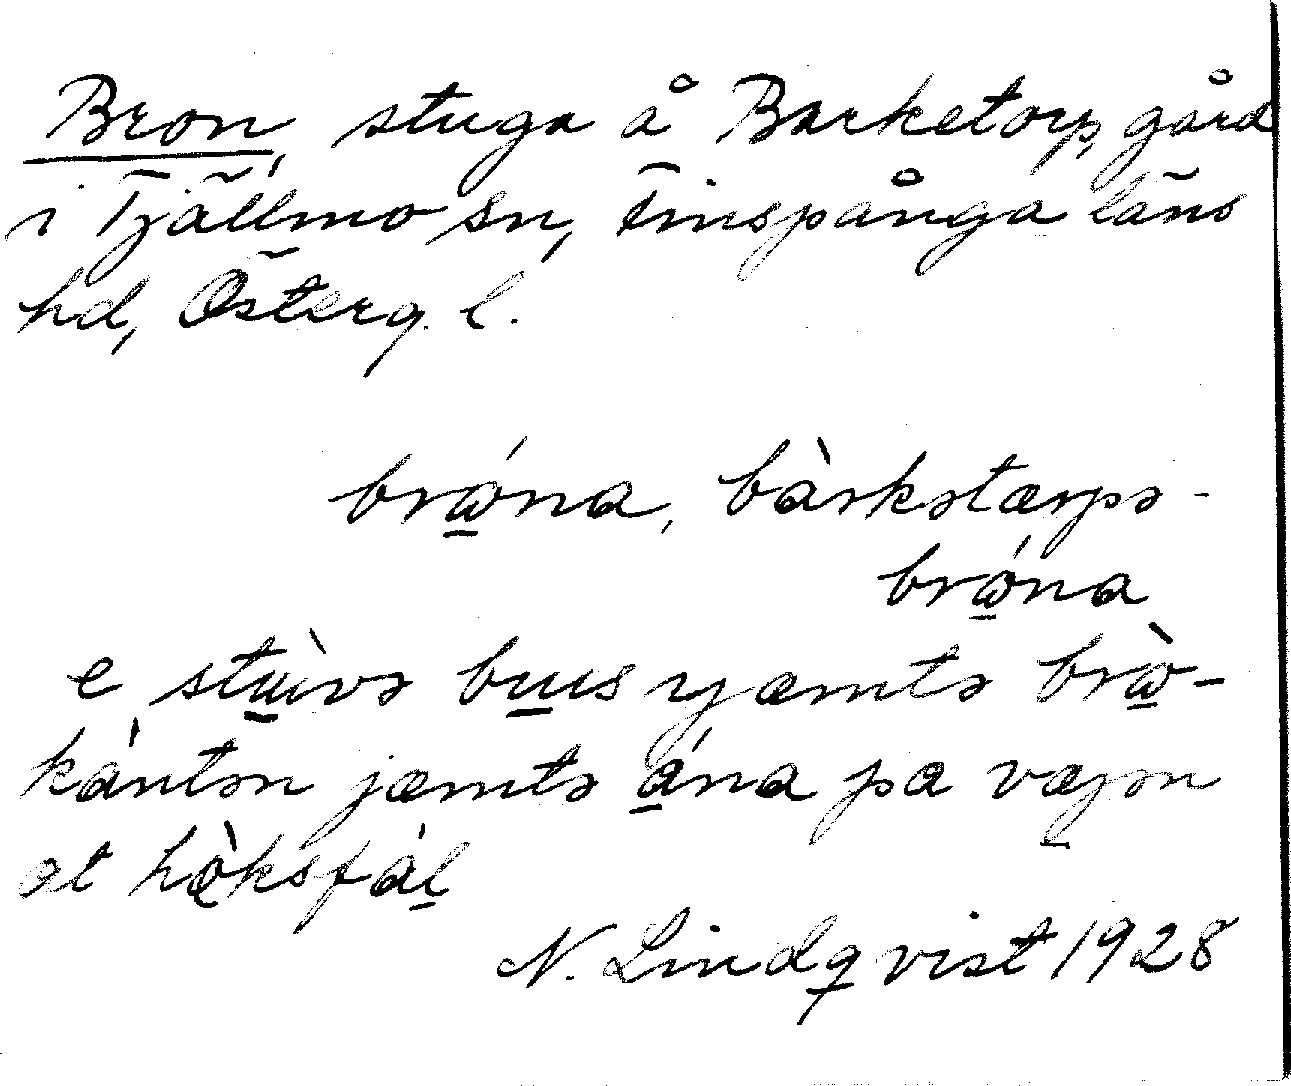 Bron, stuga å Barketorp, gård
i Tjällmo sn, Finspånga läns
hd, Österg. l.
brώ̲na, bàrkstærps-
brώ̲na
e stu̲ìvə bu̲us jæmtə brὼ̲-
kàntən jæmtə á̲na pa væjən
at hö̀ksfál̲
N. Lindqvist 1928